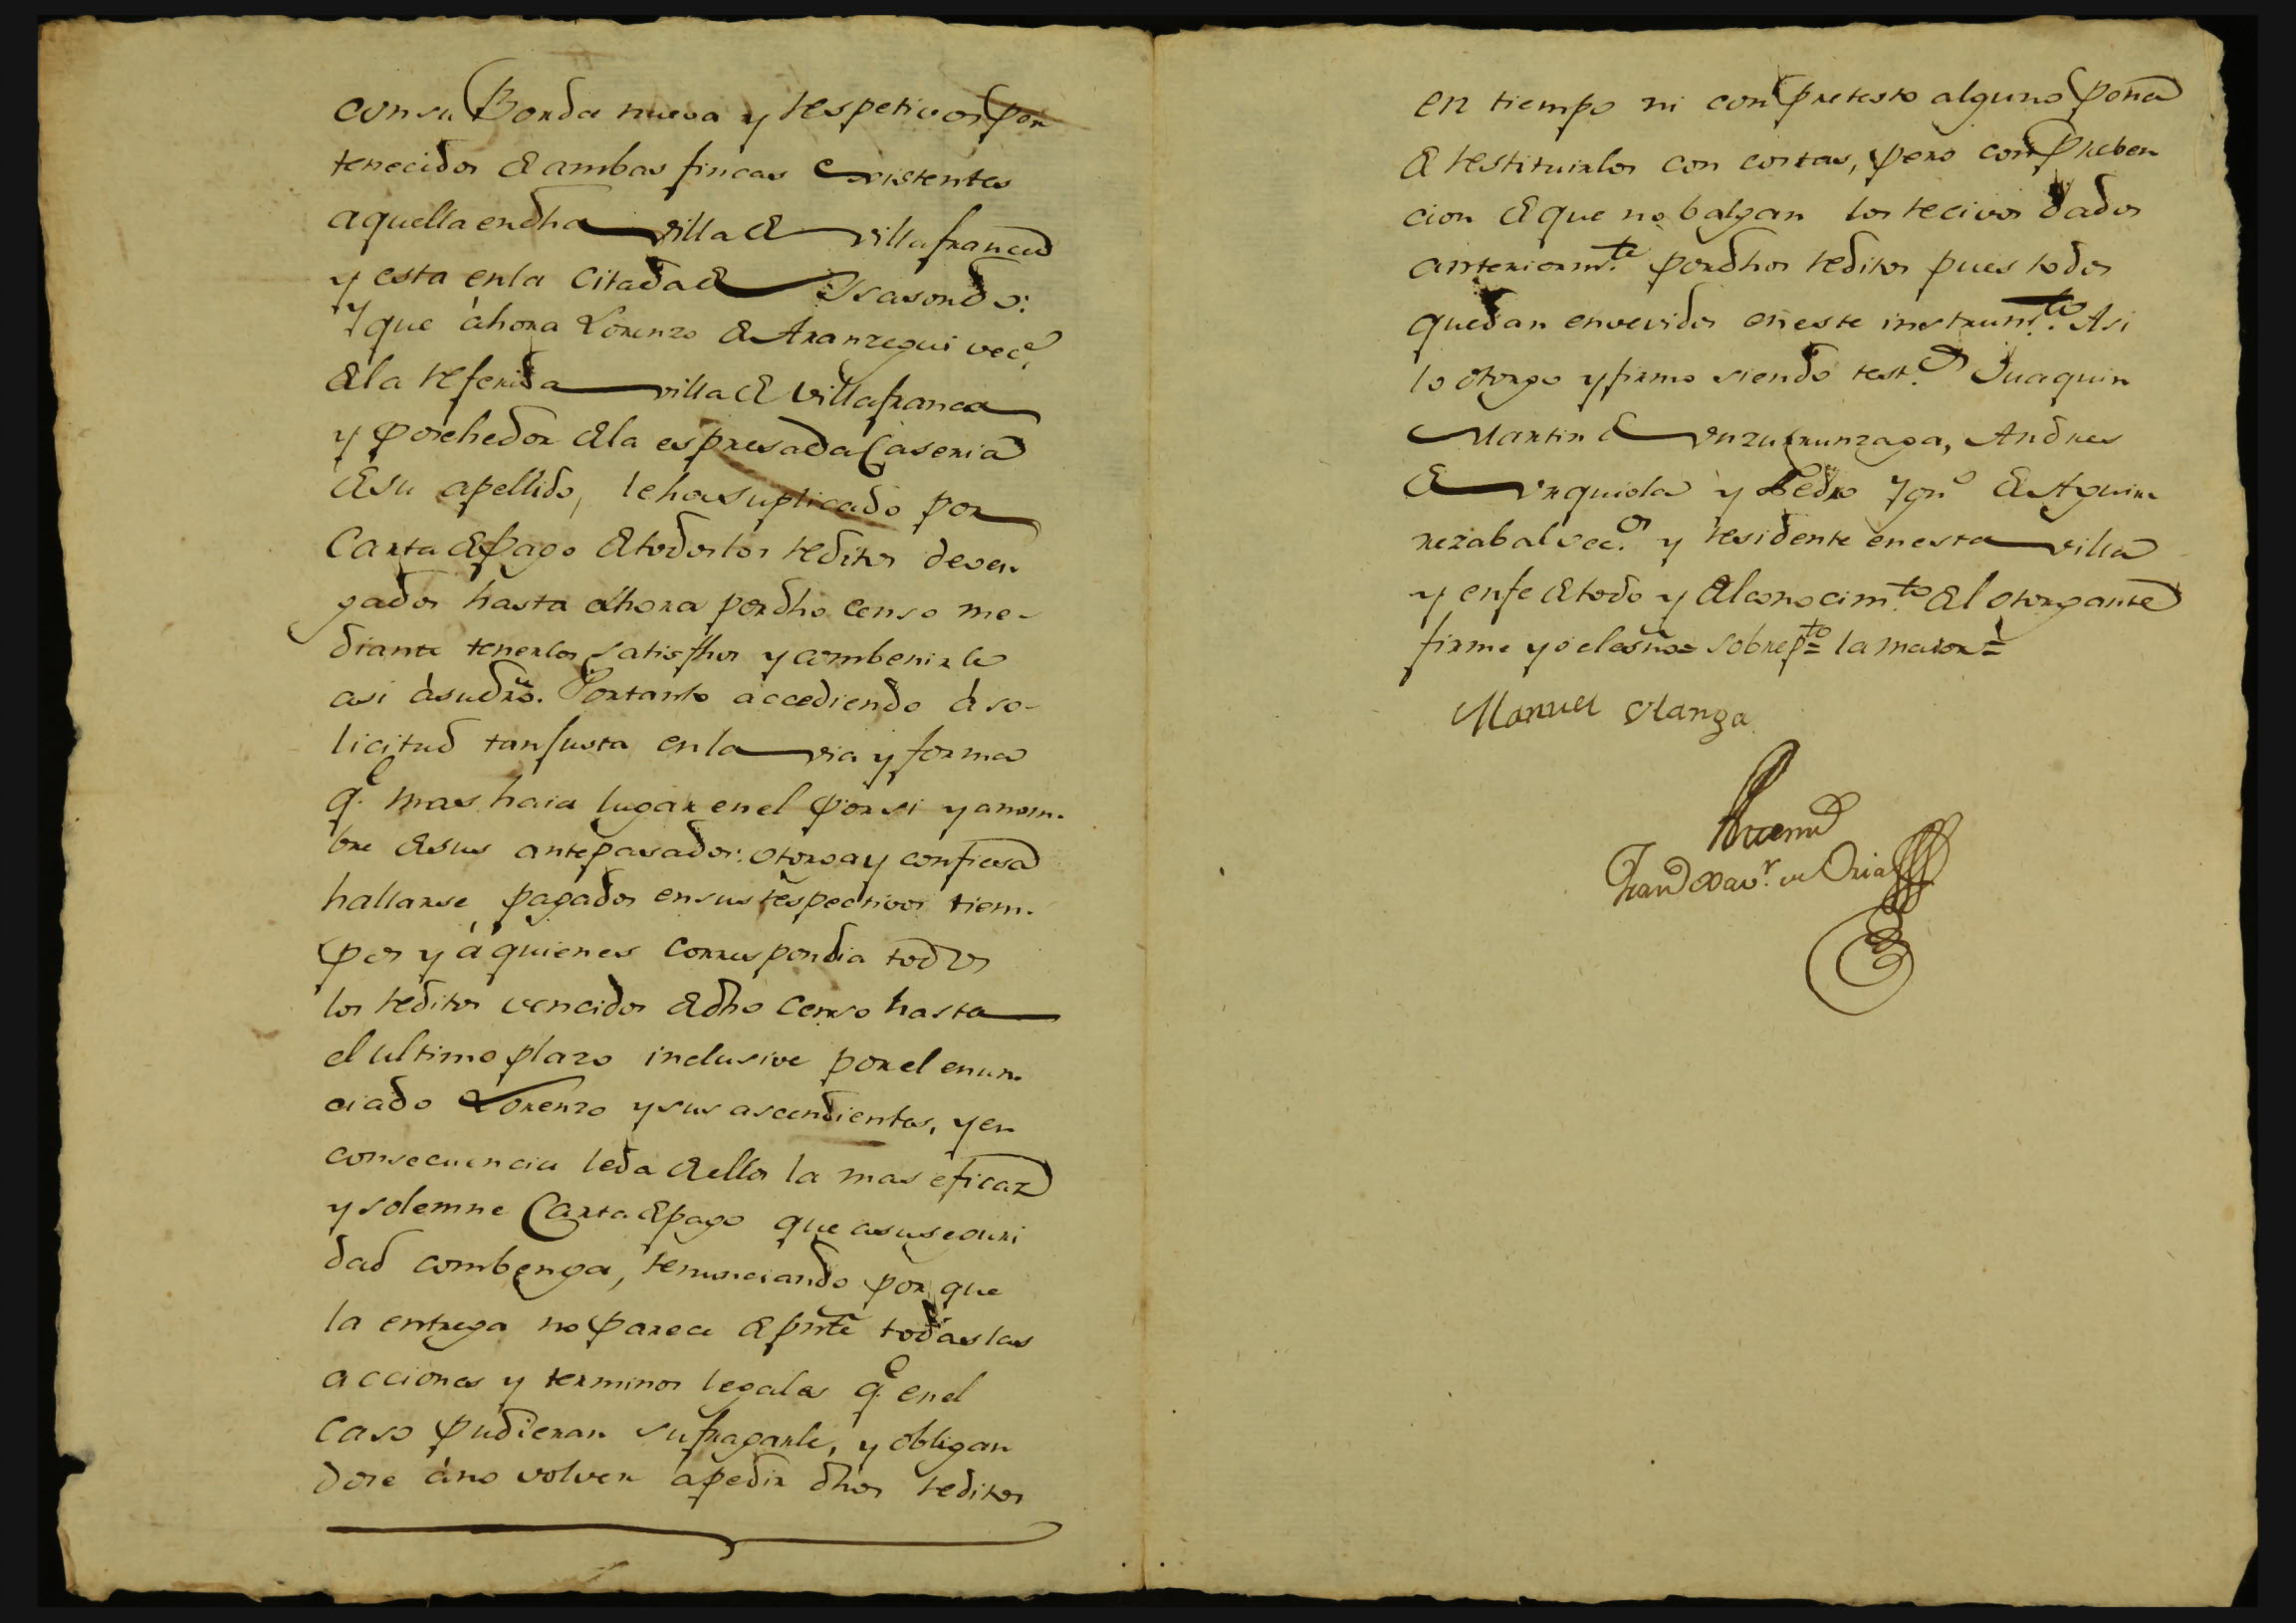 con su Borda nueva y respetivos per
tenecidos de ambas fincas existentes
aquella en dha villa de villafranca
y esta en la citada de Ysasondo:
Y que áhora Lorenzo de Aranzegui vec.º
de la referida villa de villafranca
y poehedor de la espresada Caseria
de su apellido, le ha suplicado por
Carta de pago de todos los reditos deven
gados hasta áhora por dho censo me-
diante tenerlos satisfhos y combenirle
asi á su dro. Por tanto accediendo á so-
licitud tan justa en la via y forma
q.e mas haia lugar en el por si y a nom-
bre de sus antepasados: otorga y confiesa
hallarse pagados en sus respectivos tiem-
pos y á quienes correspondia todos
los reditos vencidos de dho censo hasta
el ultimo plazo inclusive por el enun-
ciado Lorenzo y sus ascendientes, y en
consecuencia le da de ellos la mas eficaz
y solemne Carta de pago que a su seguri
dad combenga, renunciando por que
la entrega no parece de pnte todas las
acciones y terminos legales q.e en el
caso pudieran sufragarle, y obligan
dose á no volver a pedir dhos reditos
en tiempo ni con pretesto alguno pena
de restituirlos con costas, pero con preben
cion de que no balgan los recivos dados
anteriorm.te por dhos reditos pues todos
quedan envevidos en este instrum.to Asi
lo otorgo y firmo siendo test.os Juaquin
Martin de Unzurrunzaga, Andres
de Urquiola y Pedro Ygn.º de Aguir
rezabal vec.os y residente en esta villa
y en fe de todo y del conocim.to del otorgante
firme yo el esno = sobrep.to = la maior =
Manuel Olanga
Ante mi
Fran.co Xav.r de Oria